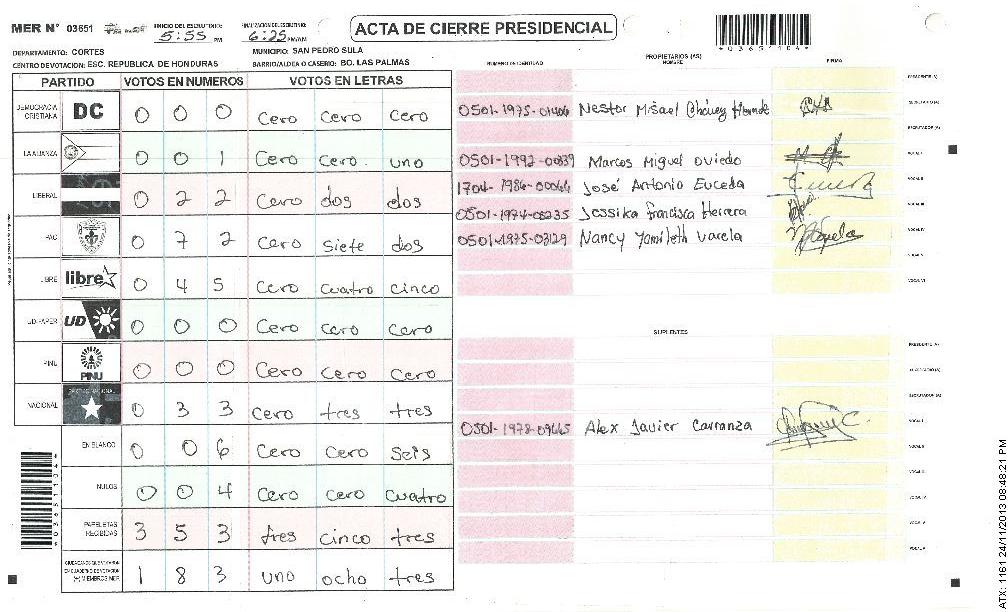 MER N° 03651 INICIO DEL ESCRUTINIO: 5:55 PM FINALIZACION DEL ESCRUTINIO: 6:25 PM/AM ACTA DE CIERRE PRESIDENCIAL
DEPARTAMENTO: CORTES MUNICIPIO: SAN PEDRO SULA
CENTRO DE VOTACION: ESC. REPUBLICA DE HONDURAS BARRIO/ALDEA O CASERIO: BO. LAS PALMAS
PARTIDO VOTOS EN NUMEROS VOTOS EN LETRAS
DEMOCRACIA CRISTIANA DC 0 0 0 Cero Cero Cero
LA ALIANZA 0 0 1 Cero Cero. uno
LIBERAL 0 2 2 Cero dos dos
PAC 0 7 2 Cero siete dos
LIBRE libre 0 4 5 Cero cuatro cinco
UD/FAPER UD 0 0 0 Cero Cero Cero
PINU PINU 0 0 0 Cero Cero Cero
NACIONAL 0 3 3 Cero tres tres
EN BLANCO 0 0 6 Cero Cero Seis
NULOS 0 0 4 Cero cero cuatro
PAPELETAS RECIBIDAS 3 5 3 tres cinco tres
CIUDADANOS QUE VOTARON EN CUADERNO DE VOTACION (+) MIEMBROS MER 1 8 3 uno ocho tres
NUMERO DE IDENTIDAD PROPIETARIOS (AS) NOMBRE FIRMA
PRESIDENTE (A)
Nestor Misael Chávez SECRETARIO (A)
ESCRUTADOR (A)
Marcos Miguel Oviedo VOCAL I
José Antonio Euceda VOCAL II
Jessika Francisca Herrera VOCAL III
0501-1975-03129 Nancy Yamileth Varela VOCAL IV
VOCAL V
VOCAL VI
SUPLENTES
PRESIDENTE (A)
SECRETARIO (A)
ESCRUTADOR (A)
Alex Javier Carranza VOCAL I
VOCAL II
VOCAL III
VOCAL IV
VOCAL V
ATX: 1161 24/11/2013 08:48:21 PM